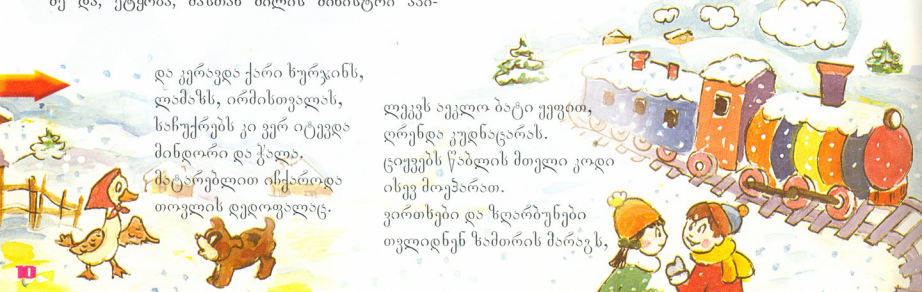 და კერავდა ქარი ხურჯინს,
ლამაზს, ირმისთვალას,
საჩუქრებს კი ვერ იტევდა
მინდორი და ჭალა.
მატარებლით იჩქაროდა
თოვლის დედოფალაც.
ლეკვს აეკლო ბატი ყეფით,
ღრენდა კუდნაცარას.
ციყვებს წაბლის მთელი კოდი
ისევ მოეპარათ.
ვირთხები და ზღარბუნები
თვლიდნენ ზამთრის მარაგს,
10